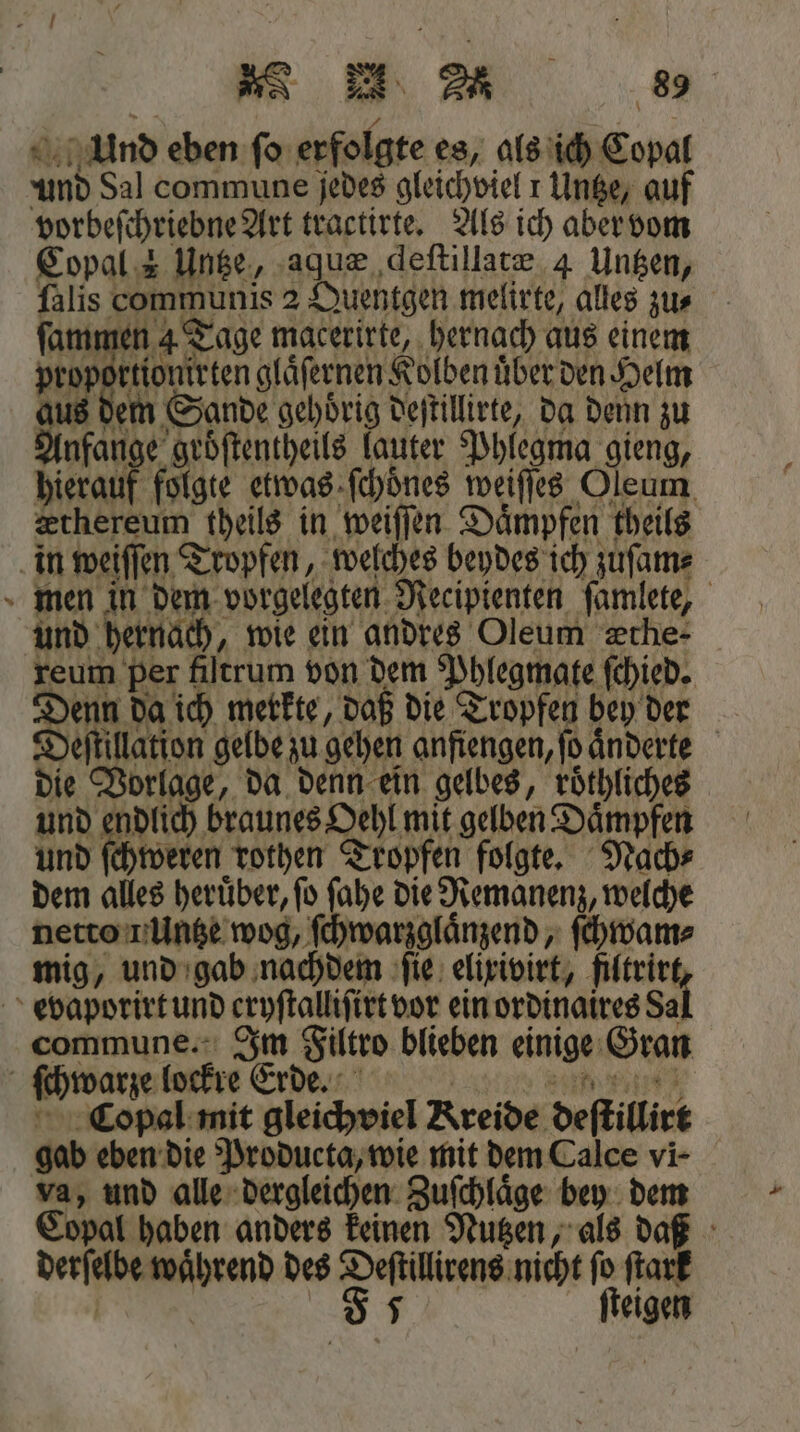 89
Und eben ſo erfolgte es, als ich Copal
und Sal commune jedes gleichviel 1 Untze, auf
vorbeſchriebne Art tractirte. Als ich aber vom
Copal Untze, aquæ deſtillatæ 4 Untzen,
ſalis communis 2 Quentgen melirte, alles zu⸗
ſammen 4 Tage macerirte, hernach aus einem
proportionirten glaͤſernen Kolben uͤber den Helm
aus dem Sande gehoͤrig deſtillirte, da denn zu
Anfange groͤſtentheils lauter Phlegma gieng,
hierauf folgte etwas ſchoͤnes weiſſes Oleum
æthereum theils in weiſſen Daͤmpfen theils
in weiſſen Tropfen, welches beydes ich zuſam⸗
men in dem vorgelegten Recipienten ſamlete,
und hernach, wie ein andres Oleum æthe-
reum per filtrum von dem Phlegmate ſchied.
Denn da ich merkte, daß die Tropfen bey der
Deſtillation gelbe zu gehen anfiengen, ſo aͤnderte
die Vorlage, da denn ein gelbes, roͤthliches
und endlich braunes Oehl mit gelben Daͤmpfen
und ſchweren rothen Tropfen folgte. Nach⸗
dem alles heruͤber, ſo ſahe die Remanenz, welche
netto 1 Untze wog, ſchwarzglaͤnzend, ſchwam⸗
mig, und gab nachdem ſie elixivirt, filtrirt,
evaporirt und cryſtalliſirt vor ein ordinaires Sal
commune. Im Filtro blieben einige Gran
ſchwarze lockre Erde.
Copal mit gleichviel Kreide deſtillirt
gab eben die Producta, wie mit dem Calce vi-
va, und alle dergleichen Zuſchlaͤge bey dem
Copal haben anders keinen Nutzen, als daß
derſelbe waͤhrend des Deſtillirens nicht ſo ſtark
F 5 ſteigen